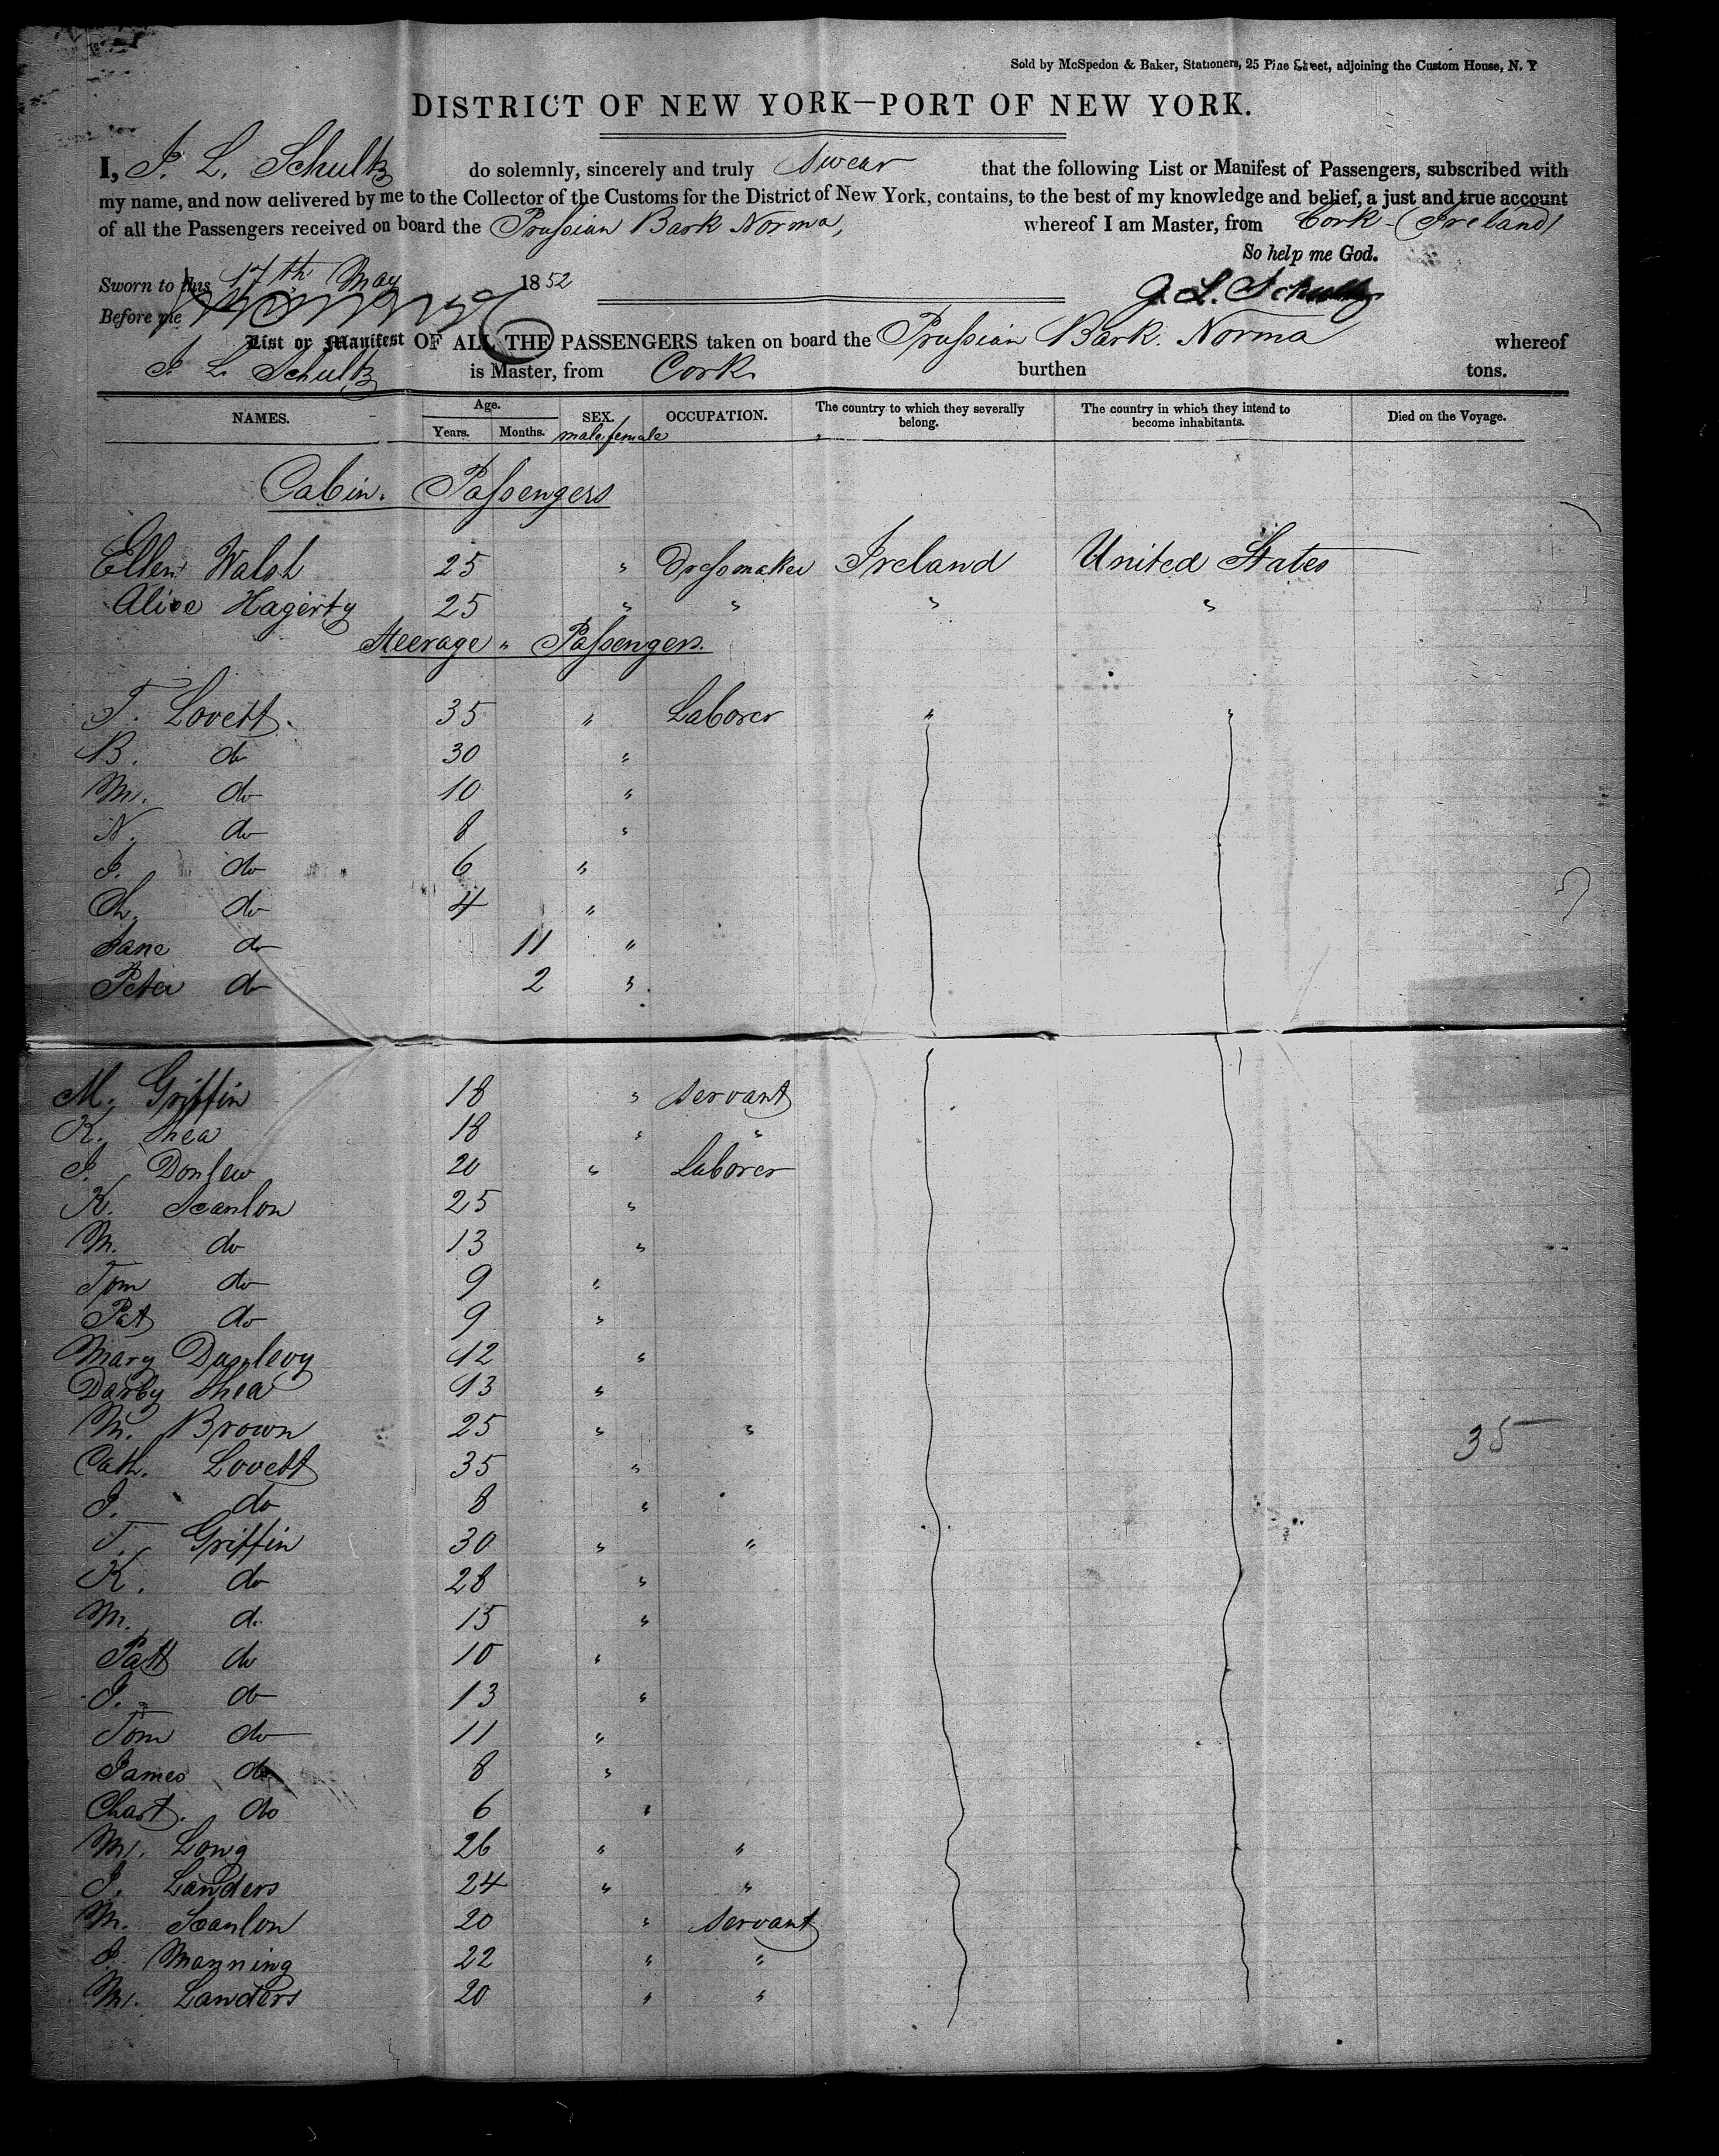 Sold by McSpedon & Baker, Stationers, 25 Pine Street, adjoining the Custom House, N. Y
DISTRICT OF NEW YORK—PORT OF NEW YORK.
I, J. L. Schultz do solemnly, sincerely and truly swear that the following List or Manifest of Passengers, subscribed with
my name, and now delivered by me to the Collector of the Customs for the District of New York, contains, to the best of my knowledge and belief, a just and true account
of all the Passengers received on board the Prussian Bark Norma, whereof I am Master, from Cork (Ireland)
So help me God.
Sworn to this 17th May 1852
J. L. Schultz
Before me
List or Manifest OF ALL THE PASSENGERS taken on board the Prussian Bark. Norma whereof
J. L. Schultz is Master, from Cork burthen tons.
NAMES. Age. Years. Months. SEX. male female OCCUPATION. The country to which they severally belong. The country in which they intend to become inhabitants. Died on the Voyage.
Cabin. Passengers
Ellen Walsh 25 " Dressmaker Ireland United States
Alice Hagerty 25 " " " "
Steerage " Passengers.
T. Lovett. 35 " Laborer " "
B. do 30 "
M. do 10 "
N. do 8 "
J. do 6 "
Ch. do 4 "
Jane do 11 "
Peter do 2 "
M. Griffin 18 " servant
K. Shea 18 " "
J. Donlew 20 " Laborer
K. Scanlon 25 "
M. do 13 "
Tom do 9 "
Pat do 9 "
Mary Dunlevy 12 "
Darby Shea 13 "
M. Brown 25 " "
35
Cath. Lovett 35 "
J. do 8 "
T. Griffin 30 " "
K. do 28 "
M. do 15 "
Patt do 10 "
J. do 13 "
Tom do 11 "
James do 8 "
Chast. do 6 "
M. Long 26 " "
J. Landers 24 " "
M. Scanlon 20 " servant
J. Manning 22 " "
M. Landers 20 " "